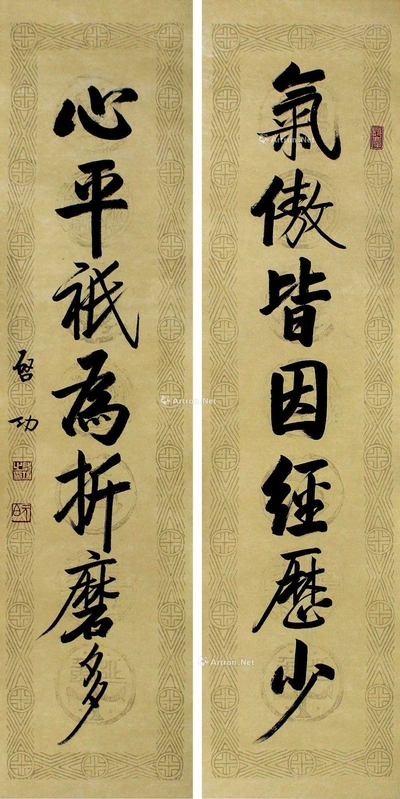 氣傲皆因經歷少
心平祇為折磨多
啓功
Artron.Net
Artron.Net
Artron.Net